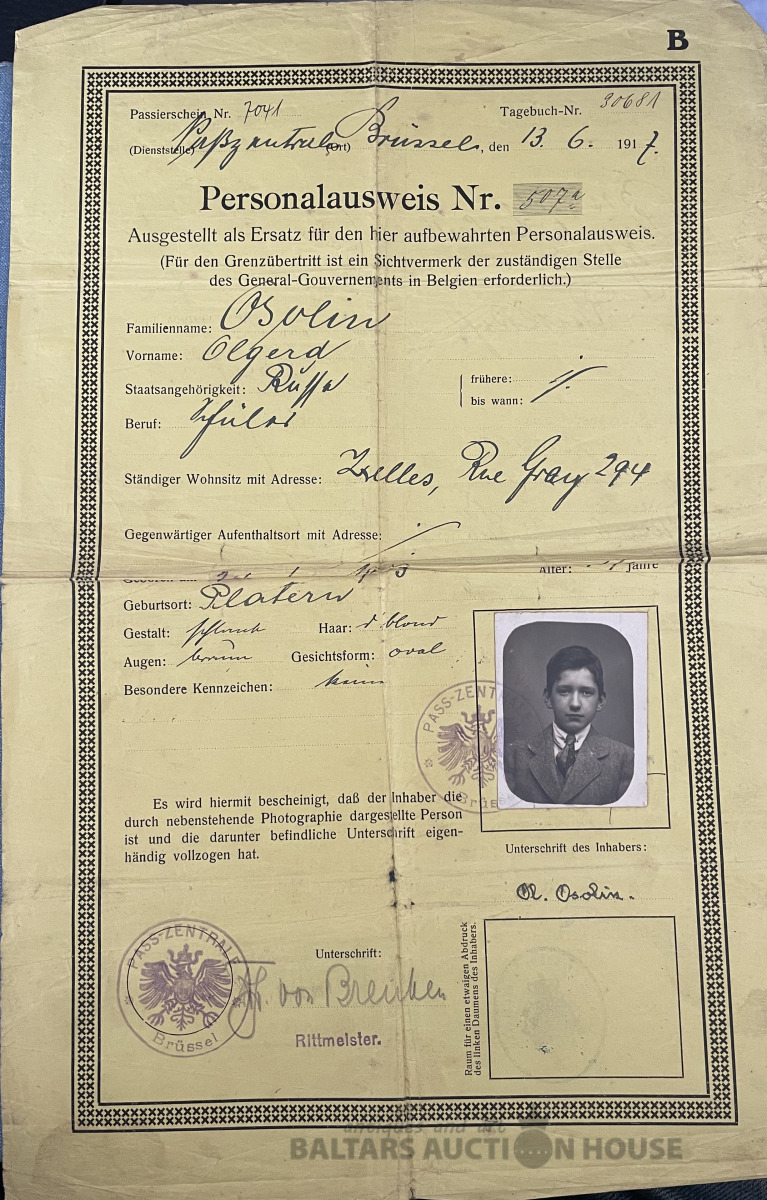 B
Passierschein Nr. 7041 Tagebuch-Nr. 30681
(Dienststelle) Paßzentrale (Ort) Brüssel, den 13. 6. 1917.
Personalausweis Nr. 507a
Ausgestellt als Ersatz für den hier aufbewahrten Personalausweis.
(Für den Grenzübertritt ist ein Sichtvermerk der zuständigen Stelle
des General-Gouvernements in Belgien erforderlich.)
Familienname: Osolin
Vorname: Olgerd
Staatsangehörigkeit: Russe
frühere:
bis wann:
Beruf: Schüler
Ständiger Wohnsitz mit Adresse: Ixelles, Rue Gray 294
Gegenwärtiger Aufenthaltsort mit Adresse:
Geboren am Alter: Jahre
Geburtsort: Platern
Gestalt: schlank Haar: d'blond
Augen: braun Gesichtsform: oval
Besondere Kennzeichen: keine
PASS-ZENTRALE
Brüssel
Es wird hiermit bescheinigt, daß der Inhaber die
durch nebenstehende Photographie dargestellte Person
ist und die darunter befindliche Unterschrift eigen-
händig vollzogen hat.
Unterschrift des Inhabers:
Ol. Osolin.
PASS-ZENTRALE
Brüssel
Unterschrift:
von
Rittmeister.
Raum für einen etwaigen Abdruck
des linken Daumens des Inhabers.
antiques and art
BALTARS AUCTION HOUSE